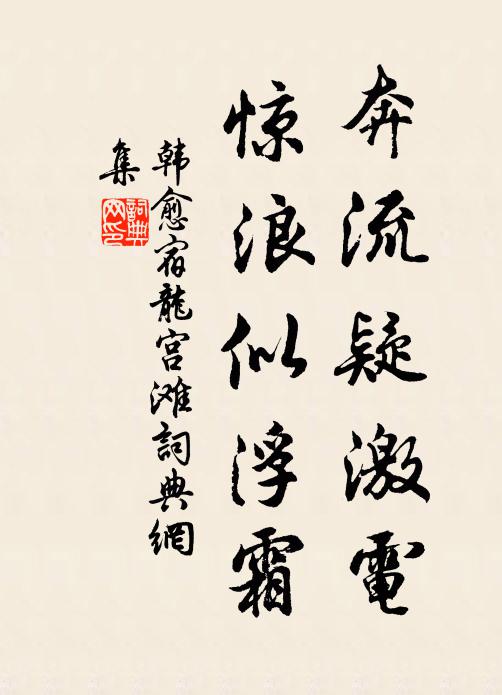 奔流疑激電
惊浪似浮霜
韩愈宿龍宫滩詞典網
集
詞典
网印